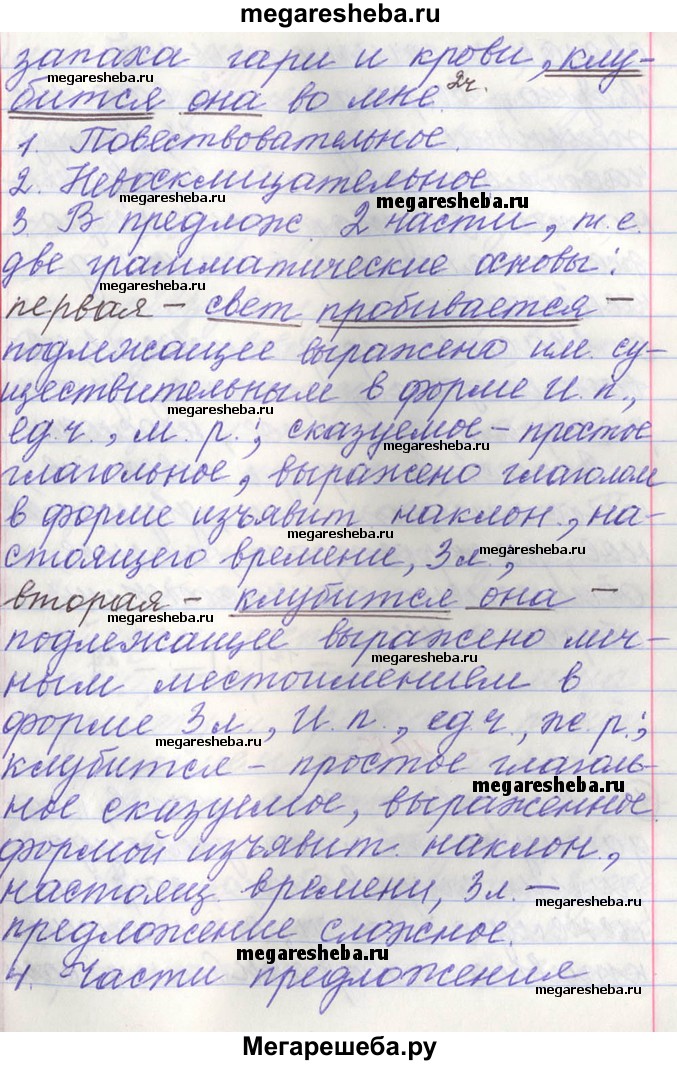 megaresheba.ru
запаха гари и крови, клу-
megaresheba.ru
бится она во мне. 2ч.
megaresheba.ru
1. Повествовательное.
2. Невосклицательное
megaresheba.ru
3. В предлож. 2 части, т.е.
две грамматические основы:
megaresheba.ru
первая – свет пробивается –
подлежащее выражено им. су-
ществительным в форме И.п.,
megaresheba.ru
ед.ч., м.р.; сказуемое – простое
megaresheba.ru
глагольное, выражено глаголом
в форме изъявит. наклон., на-
megaresheba.ru
стоящего времени, 3 л.;
megaresheba.ru
вторая – клубится она –
подлежащее выражено лич-
megaresheba.ru
ным местоимением в
форме 3 л., И.п., ед.ч., ж.р.;
megaresheba.ru
клубится – простое глаголь-
megaresheba.ru
ное сказуемое, выраженное
формой изъявит. наклон.,
настоящ. времени, 3 л. –
megaresheba.ru
предложение сложное.
megaresheba.ru
4. Части предложения
megaresheba.ru
Мегарешеба.ру